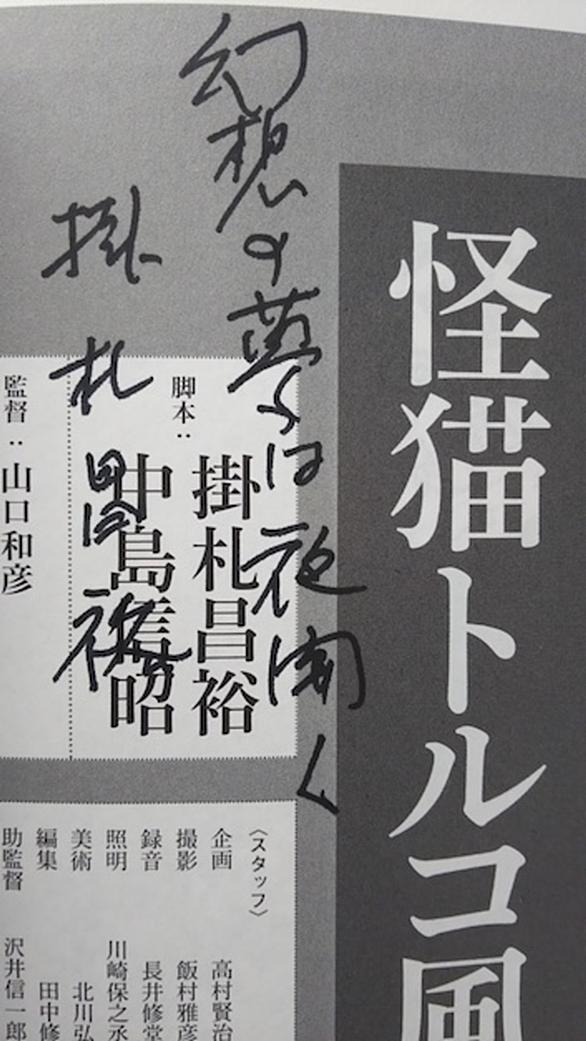 怪猫トルコ風
幻想の夢は夜開く
掛札昌裕
脚本：掛札昌裕
中島信昭
監督：山口和彦
〈スタッフ〉
企画 高村賢治
撮影 飯村雅彦
録音 長井修堂
照明 川崎保之丞
美術 北川弘
編集 田中修
助監督 沢井信一郎